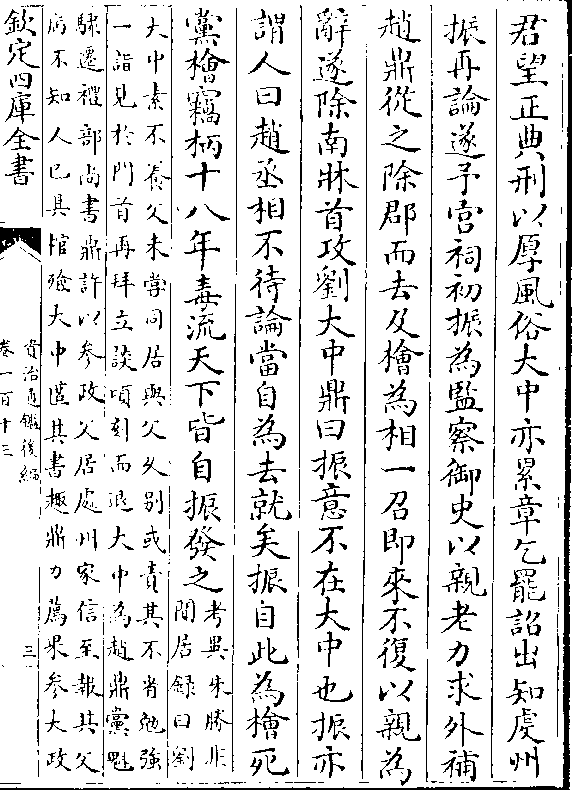 君望正典刑以厚風俗大中亦累章乞罷詔出知處州
振再論遂予宮祠初振為監察御史以親老力求外補
趙鼎從之除郡而去及檜為相一召即來不復以親為
辭遂除南牀首攻劉大中鼎曰振意不在大中也振亦
謂人曰趙丞相不待論當自為去就矣振自此為檜死
黨檜竊柄十八年毒流天下皆自振發之
考異朱勝非
閒居錄曰劉
大中素不養父未嘗同居與父久別或責其不省勉強
一詣見於門首再拜立談頃刻而退大中為趙鼎黨魁
驟遷禮部尚書鼎許以參政父居處州家信至報其父
病不知人已具棺殮大中匿其書趣鼎力薦果參大政
欽定四庫全書
資治通鑑後編
卷一百十三
三